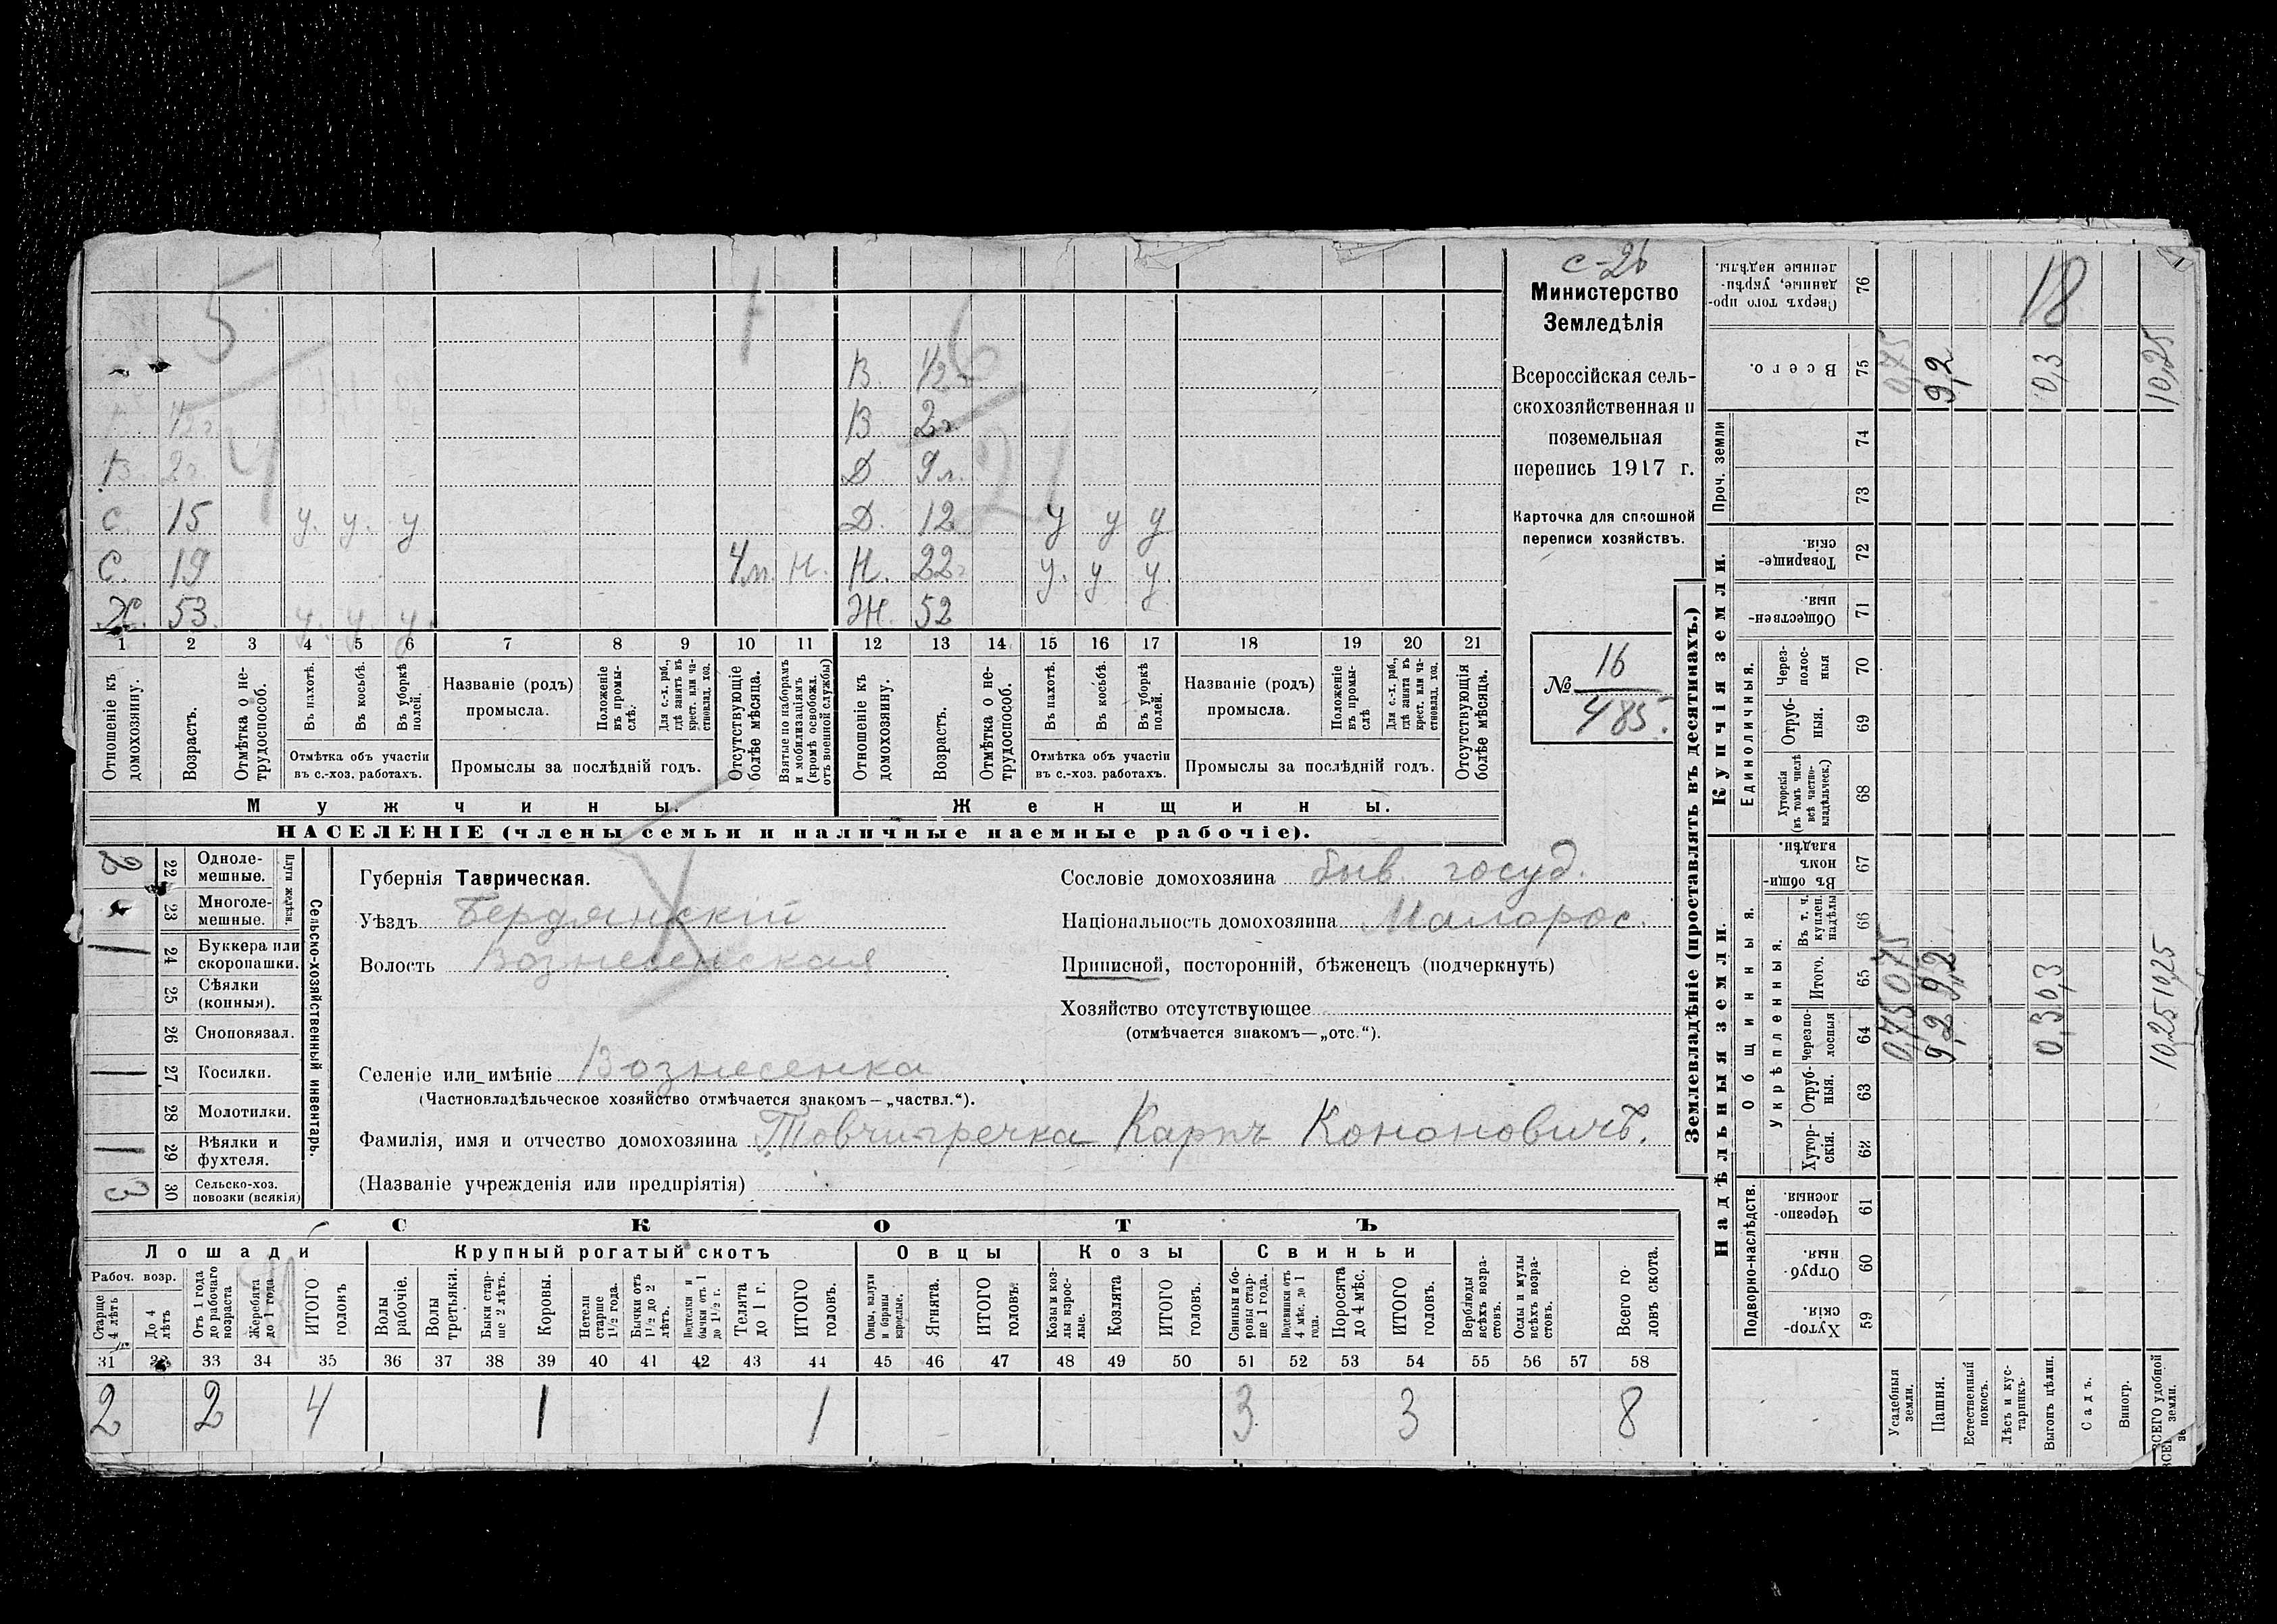 с-26
Министерство
Земледѣлія
Всероссійская сель-
скохозяйственная и
поземельная
перепись 1917 г.
Карточка для сплошной
переписи хозяйствъ.
№ 16
485.
5
1
4
6
21
В 1/2 г
1/2 г В 2 г
В. 2 г. Д 9 л.
С. 15 у. у. у Д. 12 у у у
С. 19 4 м. Н. Н. 22 г у. у. у.
Х. 53. у. у. у. Ж. 52
1 2 3 4 5 6 7 8 9 10 11 12 13 14 15 16 17 18 19 20 21
Отношеніе къ домохозяину.
Возрастъ.
Отмѣтка о не-трудоспособ.
Въ пахотѣ.
Въ косьбѣ.
Въ уборкѣ полей.
Отмѣтка объ участіи
въ с.-хоз. работахъ.
Названіе (родъ)
промысла.
Положеніе въ промы-слѣ.
Для с.-х. раб., гдѣ занятъ въ крест. или ча-стновлад. хоз.
Промыслы за послѣдній годъ.
Отсутствующіе болѣе мѣсяца.
Взятые по наборамъ и мобилизаціямъ (кромѣ освобожд. отъ военной службы)
Отношеніе къ домохозяину.
Возрастъ.
Отмѣтка о не-трудоспособ.
Въ пахотѣ.
Въ косьбѣ.
Въ уборкѣ полей.
Отмѣтка объ участіи
въ с.-хоз. работахъ.
Названіе (родъ)
промысла.
Положеніе въ промы-слѣ
Для с.-х. раб., гдѣ занята въ крест. или ча-стновлад. хоз.
Промыслы за послѣдній годъ.
Отсутствующія болѣе мѣсяца.
Мужчины. Женщины.
НАСЕЛЕНІЕ (члены семьи и наличные наемные рабочіе).
2 22 Одноле-мешные.
23 Многоле-мешные.
Плуги желѣзн.
1 24 Буккера или скоропашки.
25 Сѣялки (конныя).
26 Сноповязал.
1 27 Косилки.
28 Молотилки.
1 29 Вѣялки и фухтеля.
3 30 Сельско-хоз. повозки (всякія)
Сельско-хозяйственный инвентарь.
Губернія Таврическая.
Уѣздъ Бердянскій
Волость Вознесенская
Сословіе домохозяина быв. госуд.
Національность домохозяина Малорос.
Приписной, посторонній, бѣженецъ (подчеркнуть)
Хозяйство отсутствующее
(отмѣчается знакомъ—„отс.“).
Селеніе или имѣніе Вознесенка
(Частновладѣльческое хозяйство отмѣчается знакомъ—„частвл.“).
Фамилія, имя и отчество домохозяина Товчигречка Карпъ Кононовичъ.
(Названіе учрежденія или предпріятія)
СКОТЪ
Лошади Крупный рогатый скотъ Овцы Козы Свиньи
Рабоч. возр.
Старше 4 лѣтъ
До 4 лѣтъ
Отъ 1 года до рабочаго возраста
Жеребята до 1 года
ИТОГО головъ
Волы рабочіе.
Волы третьяки.
Быки стар-ше 2 лѣтъ.
Коровы.
Нетели старше 1 1/2 года.
Бычки отъ 1 1/2 до 2 лѣтъ.
Подтелки и бычки отъ 1 до 1 1/2 г.
Телята до 1 г.
ИТОГО головъ.
Овцы, валухи и бараны взрослые.
Ягнята.
ИТОГО головъ.
Козы и коз-лы взрос-лые.
Козлята
ИТОГО головъ.
Свиньи и бо-ровы стар-ше 1 года.
Подсвинки отъ 4 мѣс. до 1 года.
Поросята до 4 мѣс.
ИТОГО головъ.
Верблюды всѣхъ возра-стовъ.
Ослы и мулы всѣхъ возра-стовъ.
Всего го-ловъ скота.
31 32 33 34 35 36 37 38 39 40 41 42 43 44 45 46 47 48 49 50 51 52 53 54 55 56 57 58
2 2 4 1 1 3 3 8
Землевладѣніе (проставлять въ десятинахъ.)
Купчія земли.
Надѣльныя земли.
Сверхъ того про-данные, укрѣп-ленные надѣлы. 76 18
Всего. 75 0,75 9,2 0,3 10,25
Проч. земли 74
73
Товарище-скія. 72
Обществен-ныя. 71
Единоличныя.
Через-полос-ныя 70
Отруб-ныя. 69
Хуторскія (въ томъ числѣ всѣ частно-владѣльческ.) 68
Общинныя.
Въ общин-номъ владѣн. 67
Укрѣпленныя.
Въ т. ч. куплен. надѣлы 66
Итого. 65 0,75 9,2 0,3 10,25
Черезпо-лосныя 64 0,75 9,2 0,3 10,25
Отруб-ныя. 63
Хутор-скія. 62
Подворно-наслѣдств.
Черезпо-лосныя. 61
Отруб-ныя. 60
Хутор-скія. 59
Усадебныя земли.
Пашня.
Естественный покосъ.
Лѣсъ и кус-тарникъ.
Выгонъ цѣлин.
Садъ.
Виногр.
ВСЕГО удобной земли.